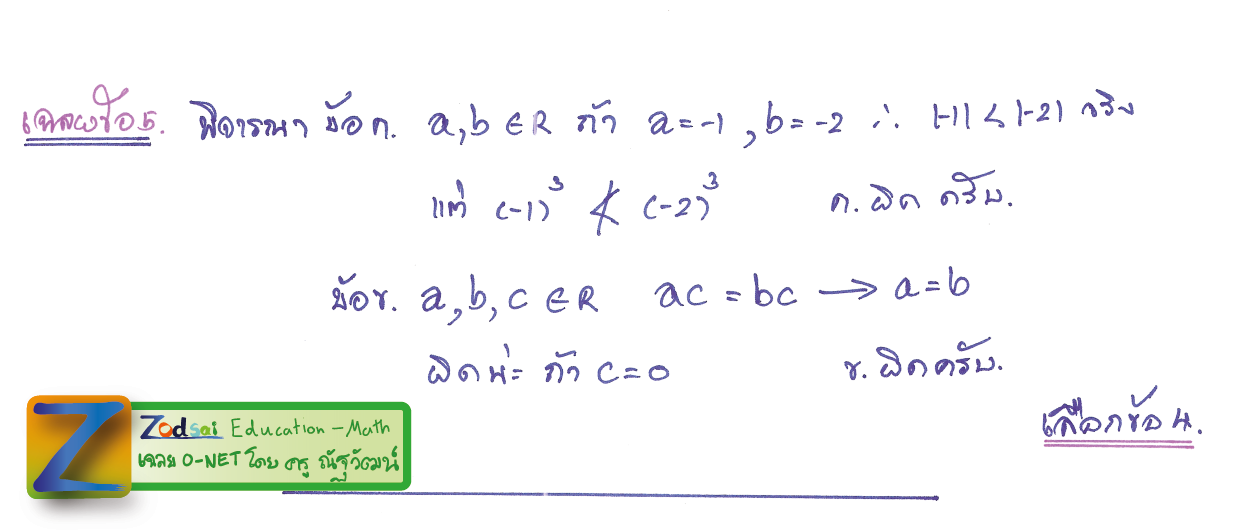 เฉลยข้อ 5. พิจารณา ข้อ ก. a,b ∈ R ถ้า a=-1 , b=-2 ∴ |-1| < |-2| จริง
แต่ (-1)³ ≮ (-2)³ ก. ผิด ครับ.
ข้อ ข. a,b,c ∈ R ac = bc → a=b
ผิดน่ะ ถ้า c=0 ข. ผิดครับ.
เลือกข้อ 4.
Z
Zodsai Education - Math
เฉลย O-NET โดย ครู ณัฐวัฒน์